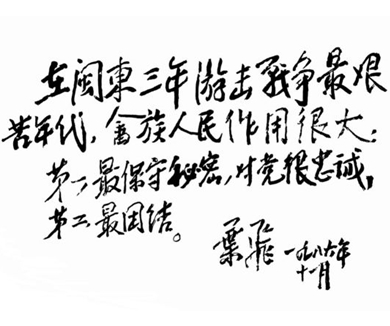 在闽東三年游击战争最艰
苦年代，畲族人民作用很大：
第一最保守秘密，对党很忠诚，
第二最团结。
葉飞 一九八六年
十一月